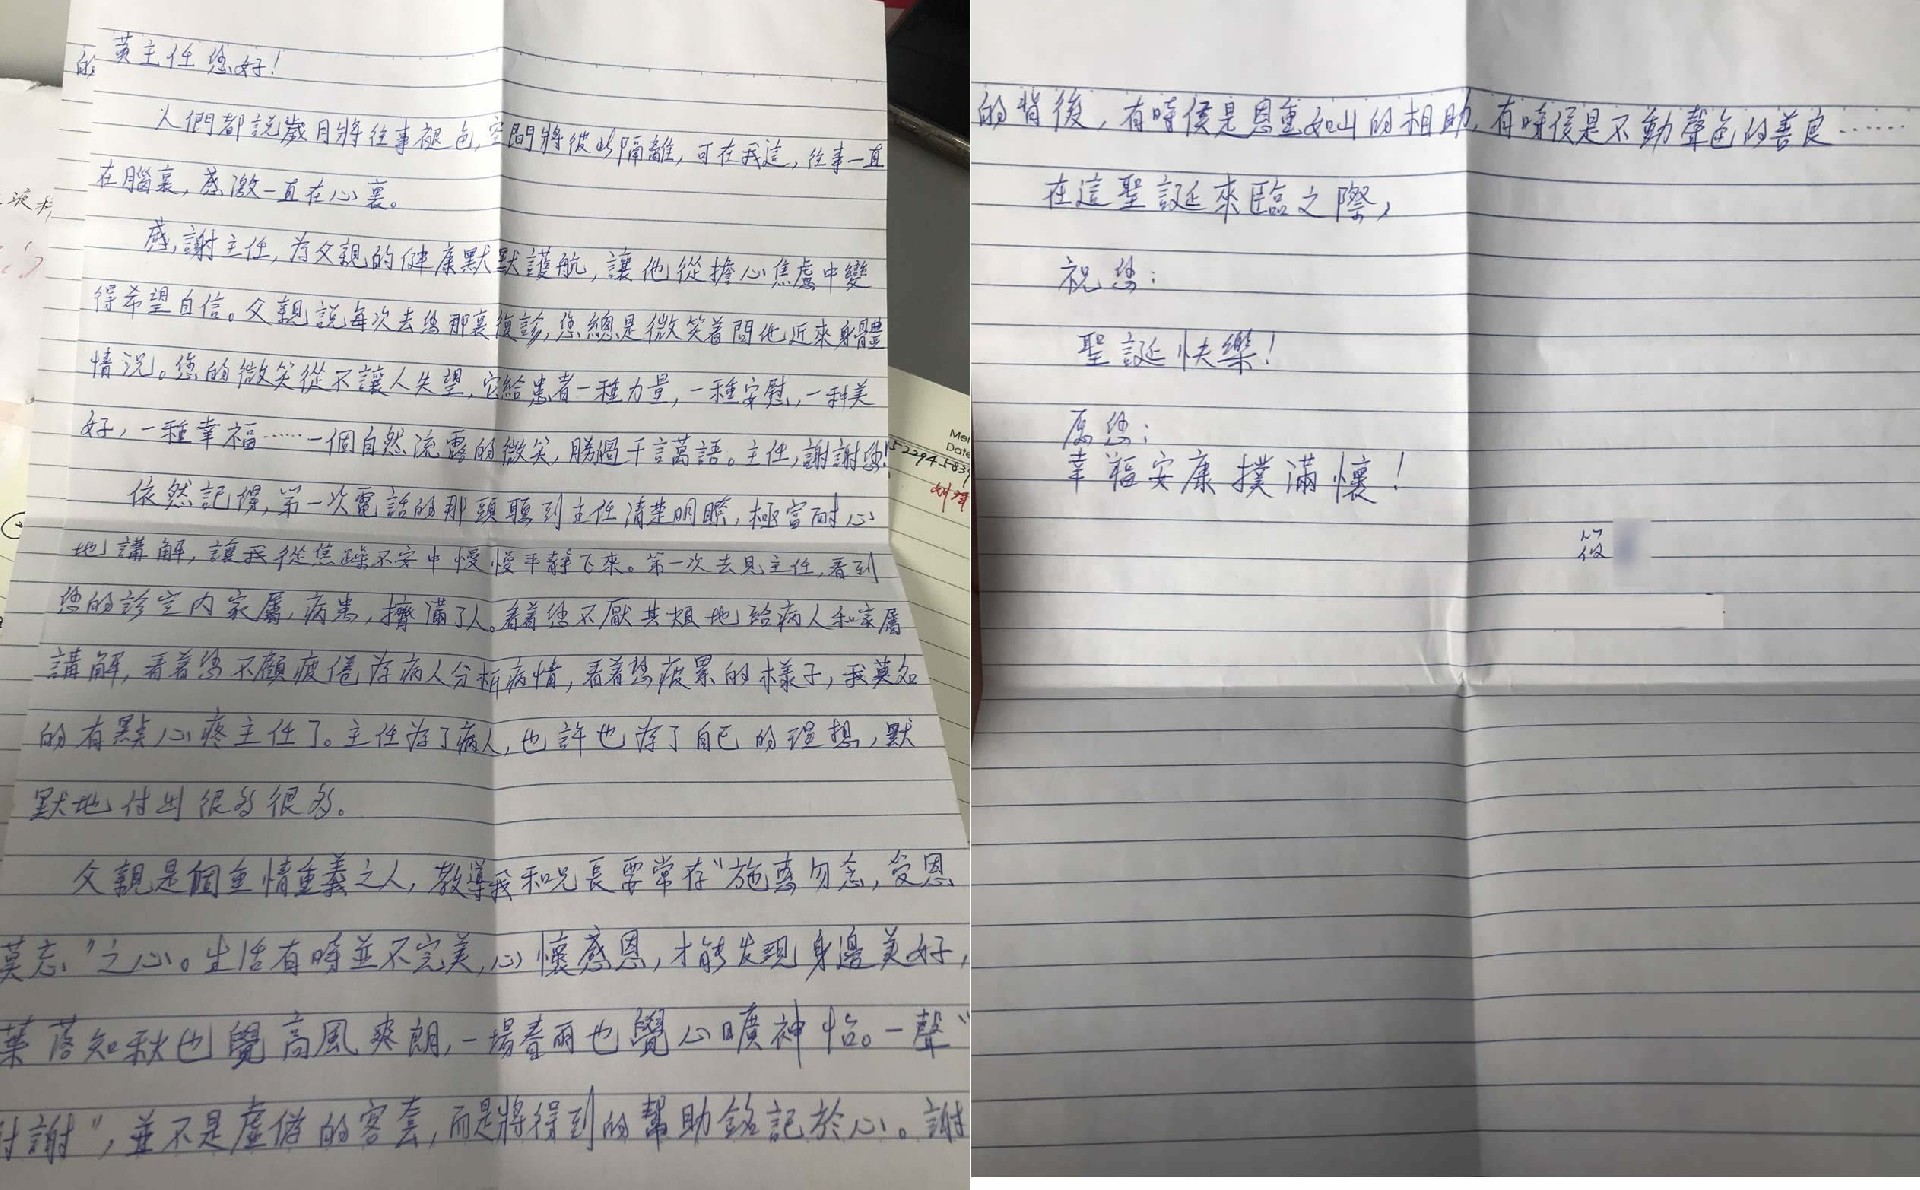 英主任您好!
人們都說歲月將往事褪色,空間將彼此隔離,可在我這,往事一直
在腦裏,感激一直在心裏。
感謝主任,為父親的健康默默護航,讓他從擔心焦慮中變
得希望自信。父親說每次去您那裏復診,您總是微笑著問他近來身體
情況。您的微笑從不讓人失望,它給患者一種力量,一種安慰,一種美
好,一種幸福……一個自然流露的微笑,勝過千言萬語。主任,謝謝您!
依然記得,第一次電話的那頭聽到主任清楚明瞭,極富耐心
地講解,讓我從焦躁不安中慢慢平靜下來。第一次去見主任,看到
您的診室內家屬,病患,擠滿了人。看著您不厭其煩地給病人和家屬
講解,看著您不顧疲倦為病人分析病情,看著您疲累的樣子,我莫名
的有點心疼主任了。主任為了病人,也許也為了自己的理想,默
默地付出很多很多。
父親是個重情重義之人,教導我和兄長要常存"施惠勿念,受恩
莫忘"之心。生活有時並不完美,心懷感恩,才能发現身邊美好,
葉落知秋也覺高風爽朗,一場春雨也覺心曠神怡。一聲"
謝",並不是虛偽的客套,而是將得到的幫助銘記於心。謝
的
Date
的背後,有時侯是恩重如山的相助,有時侯是不動聲色的善良……
在這聖誕來臨之際,
祝您:
聖誕快樂!
愿您:
幸福安康撲滿懷!
筱